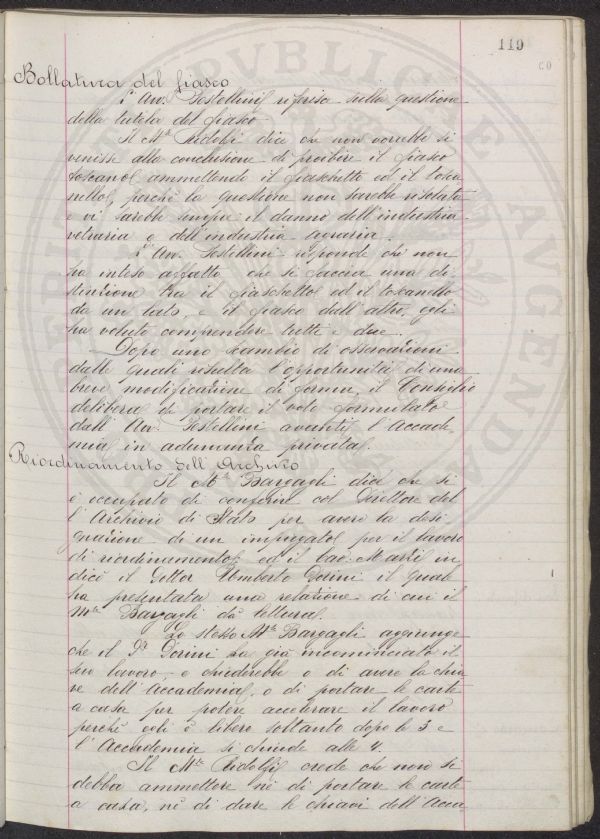 119
60
Bollatura del fiasco
L'Avv. Postellini riferisce sulla questione
della tutela del fiasco
Il Mse Ridolfi dice che non vorrebbe si
venisse alla conclusione di proibire il fiasco
toscano ammettendo il fiaschetto ed il tosca
nello perchè la questione non sarebbe risoluta
e vi sarebbe sempre il danno dell'industria
vetraria e dell'industria agraria.
L'Avv. Postellini risponde che non
ha inteso affatto che si faccia una di-
stinzione tra il fiaschetto ed il toscanello
da un lato, e il fiasco dall'altro, egli
ha voluto comprendere tutti e due.
Dopo uno scambio di osservazioni
dalle quali risulta l'opportunità di una
breve modificazione di forma, il Consiglio
delibera di portare il voto formulato
dall'Avv. Postellini avanti l'Accade-
mia in adunanza privata.
Riordinamento dell'Archivio
Il Mse Bargagli dice che si
è occupato di conferire col Direttore del
l'Archivio di Stato per avere la desi
gnazione di un impiegato per il lavoro
di riordinamento, ed il Cav. Marzi in
dicò il Dottor Umberto Dorini il quale
ha presentata una relazione di cui il
Mse Bargagli dà lettura.
Lo stesso Mse Bargagli aggiunge
che il Dr Dorini ha già incominciato il
suo lavoro, e chiederebbe o di avere la chia
ve dell'Accademia, o di portare le carte
a casa per potere accelerare il lavoro
perchè egli è libero soltanto dopo le 3 e
l'Accademia si chiude alle 4.
Il Mse Ridolfi crede che non si
debba ammettere nè di portare le carte
a casa, nè di dare le chiavi dell'Acca